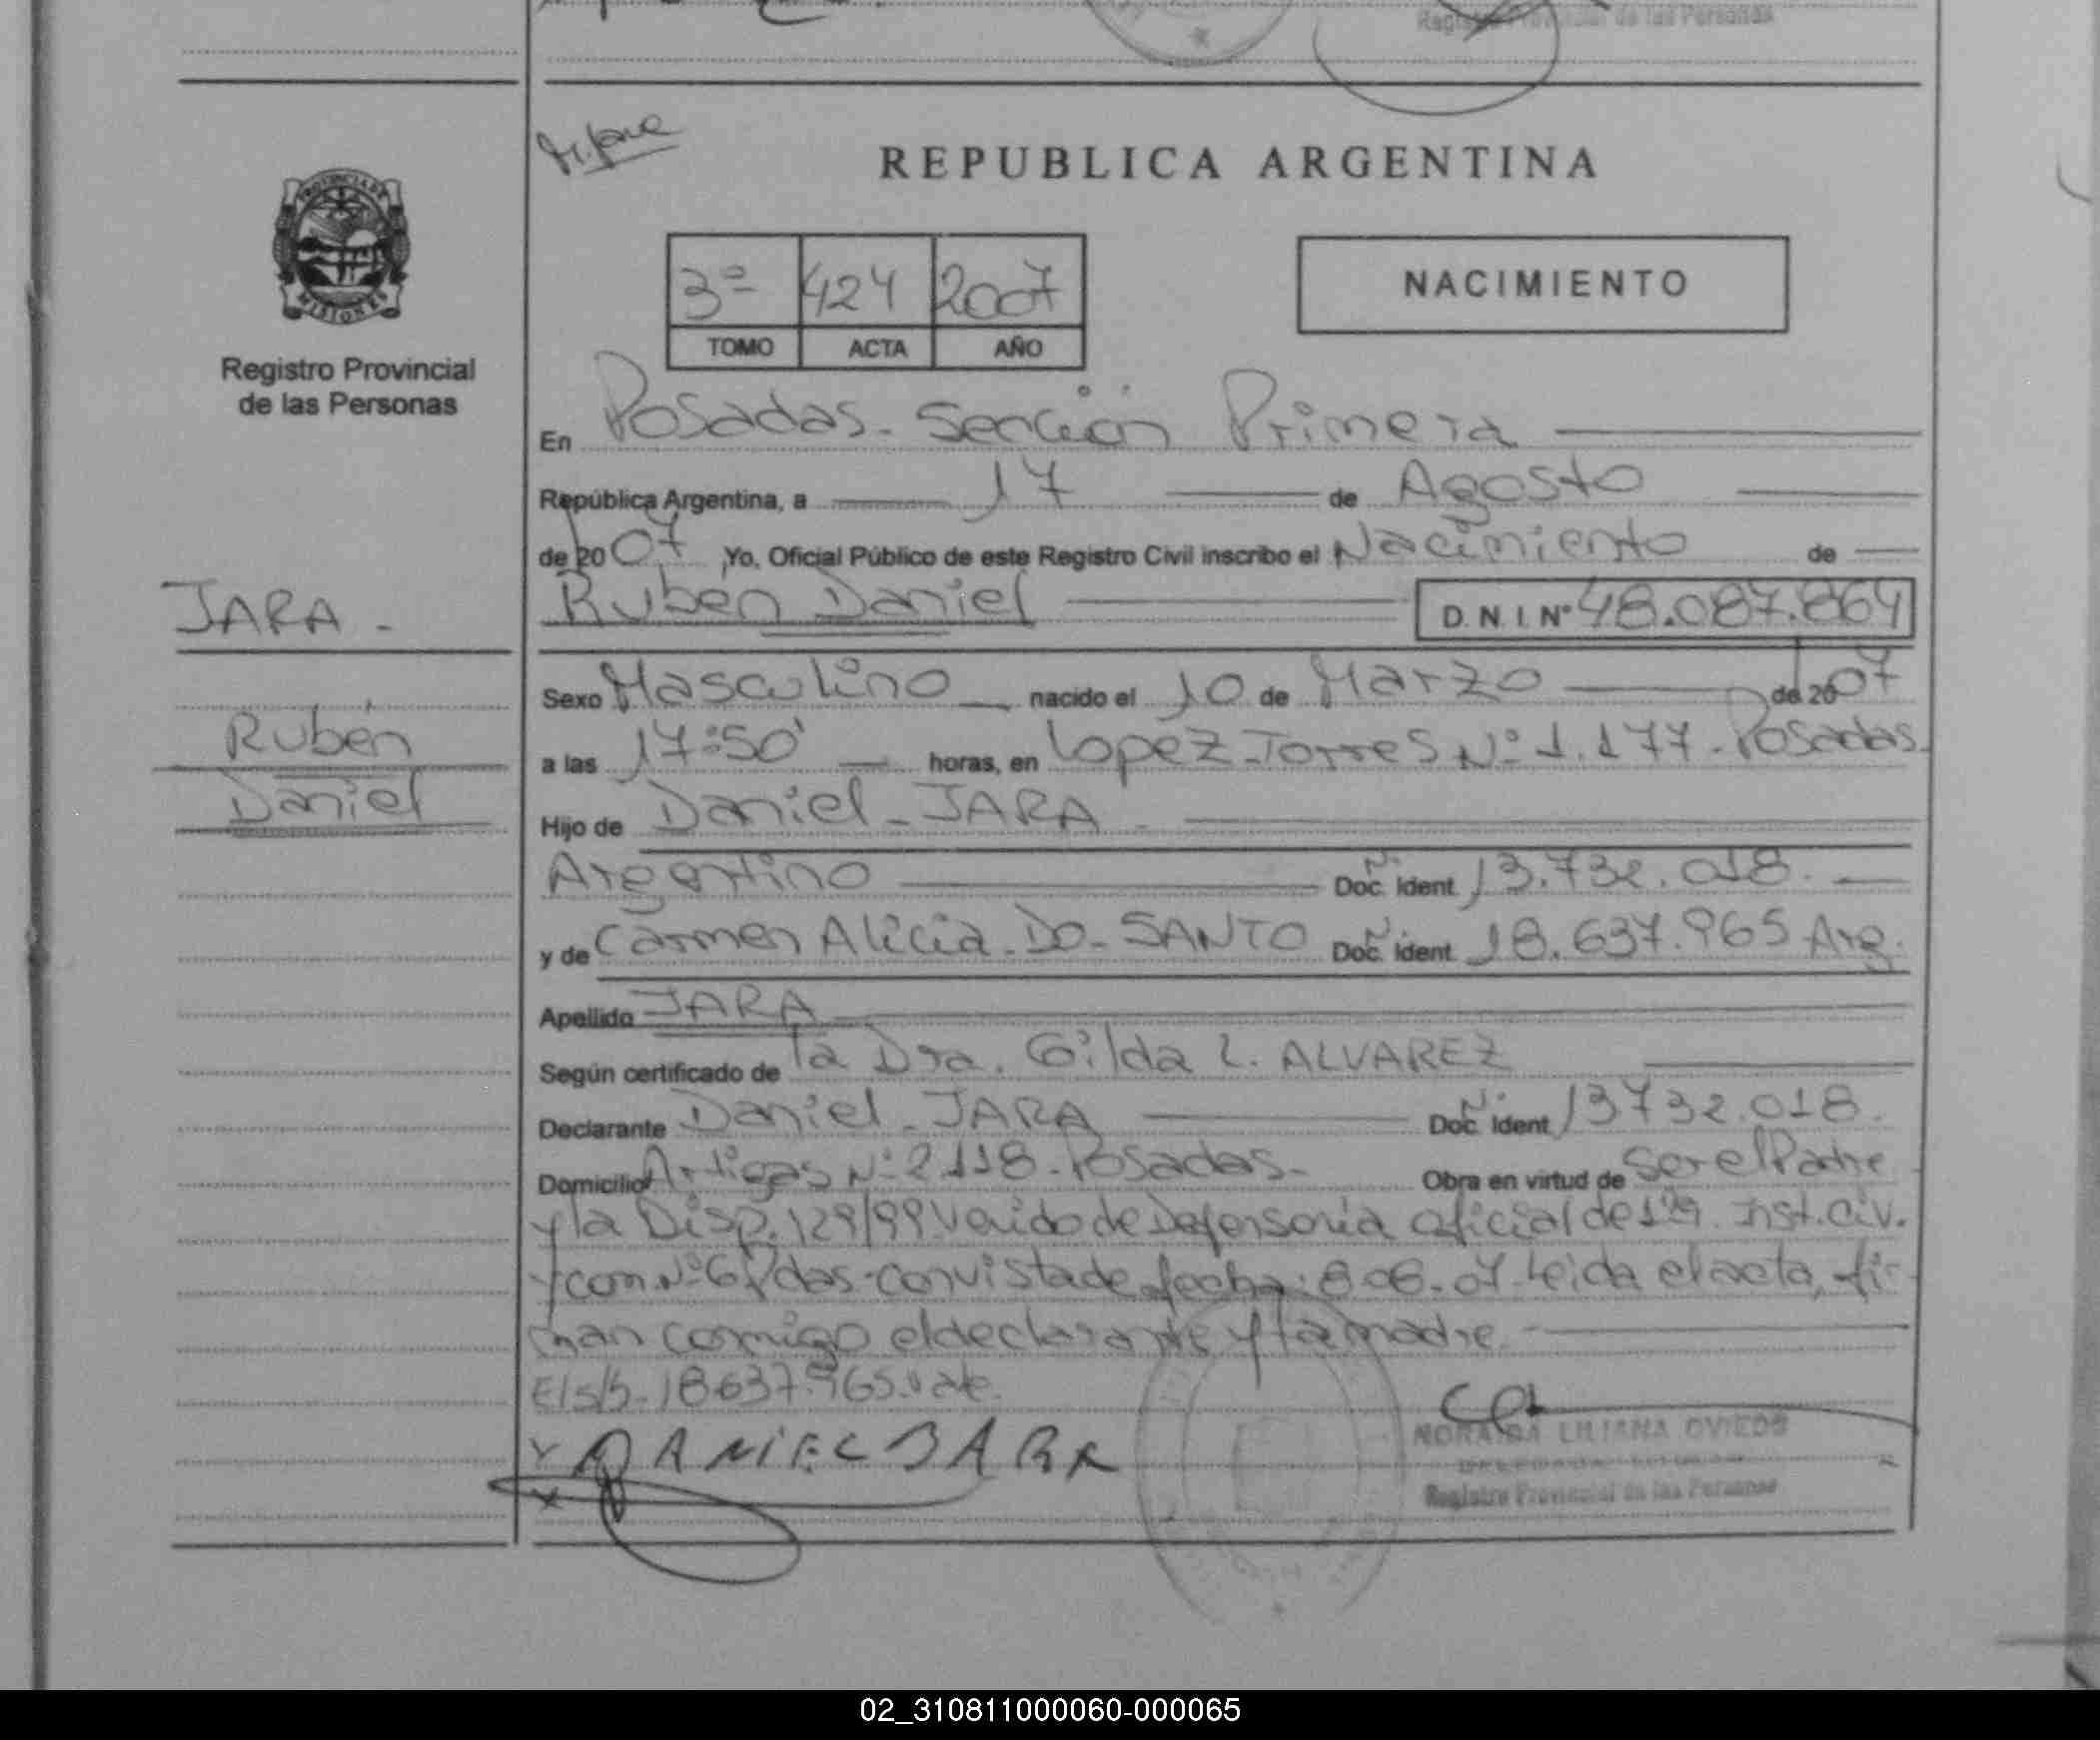 Registro Provincial de las Personas
REPUBLICA ARGENTINA
PROVINCIA DE
MISIONES
Registro Provincial
de las Personas
3º 424 2007
TOMO ACTA AÑO
NACIMIENTO
En Posadas - Sección Primera
República Argentina, a 17 de Agosto
de 2007 Yo, Oficial Público de este Registro Civil inscribo el Nacimiento de
JARA -
Rubén Daniel D.N.I. Nº 48.087.864
Sexo Masculino nacido el 10 de Marzo de 2007
Rubén
Daniel
a las 17:50' horas, en Lopez Torres Nº 1.177 - Posadas
Hijo de Daniel - JARA -
Argentino Doc. Ident Nº 13.732.018.
y de Carmen Alicia - DO - SANTO Doc. Ident Nº 18.637.965 Arg.
Apellido JARA
Según certificado de la Dra. Gilda L. ALVAREZ
Declarante Daniel - JARA Doc. Ident Nº 13732.018.
Domicilio Artigas Nº 2.118 - Posadas - Obra en virtud de Ser el Padre
y la Disp. 129/99 Venido de Defensoria Oficial de 1ra. Inst. Civ.
y com. Nº 6 Pdas - con vista de fecha: 8-06-07 - Leida el acta, fir-
man conmigo el declarante y la madre.
E/s/b - 18.637.965. vale
X DANIEL JARA
X
NORAIDA LILIANA OVIEDO
Registro Provincial de las Personas
02_310811000060-000065